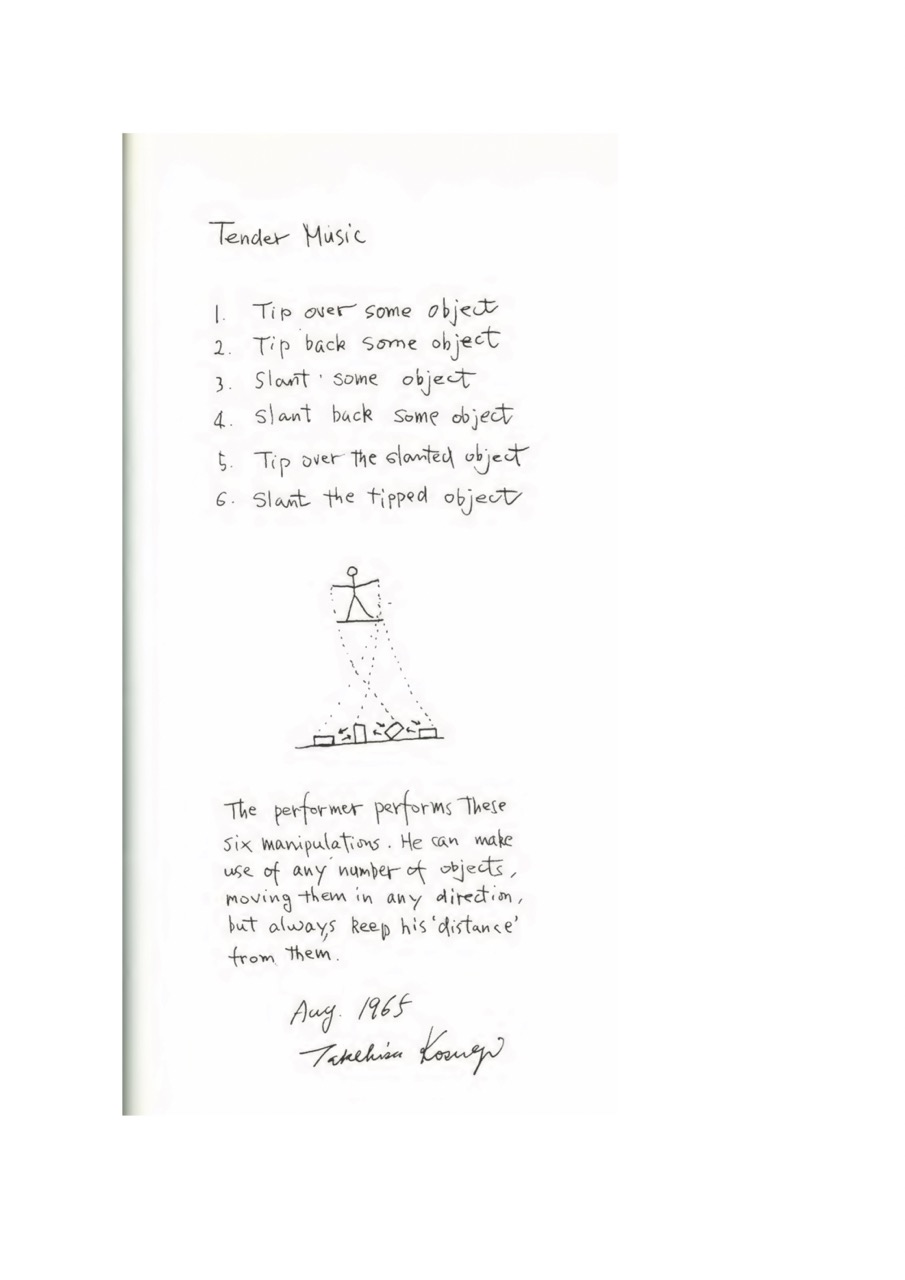 Tender Music
1. Tip over some object
2. Tip back some object
3. Slant some object
4. Slant back some object
5. Tip over the slanted object
6. Slant the tipped object
The performer performs These
six manipulations. He can make
use of any number of objects,
moving them in any direction,
but always keep his 'distance'
from them.
Aug. 1965
Takehisa Kosugi